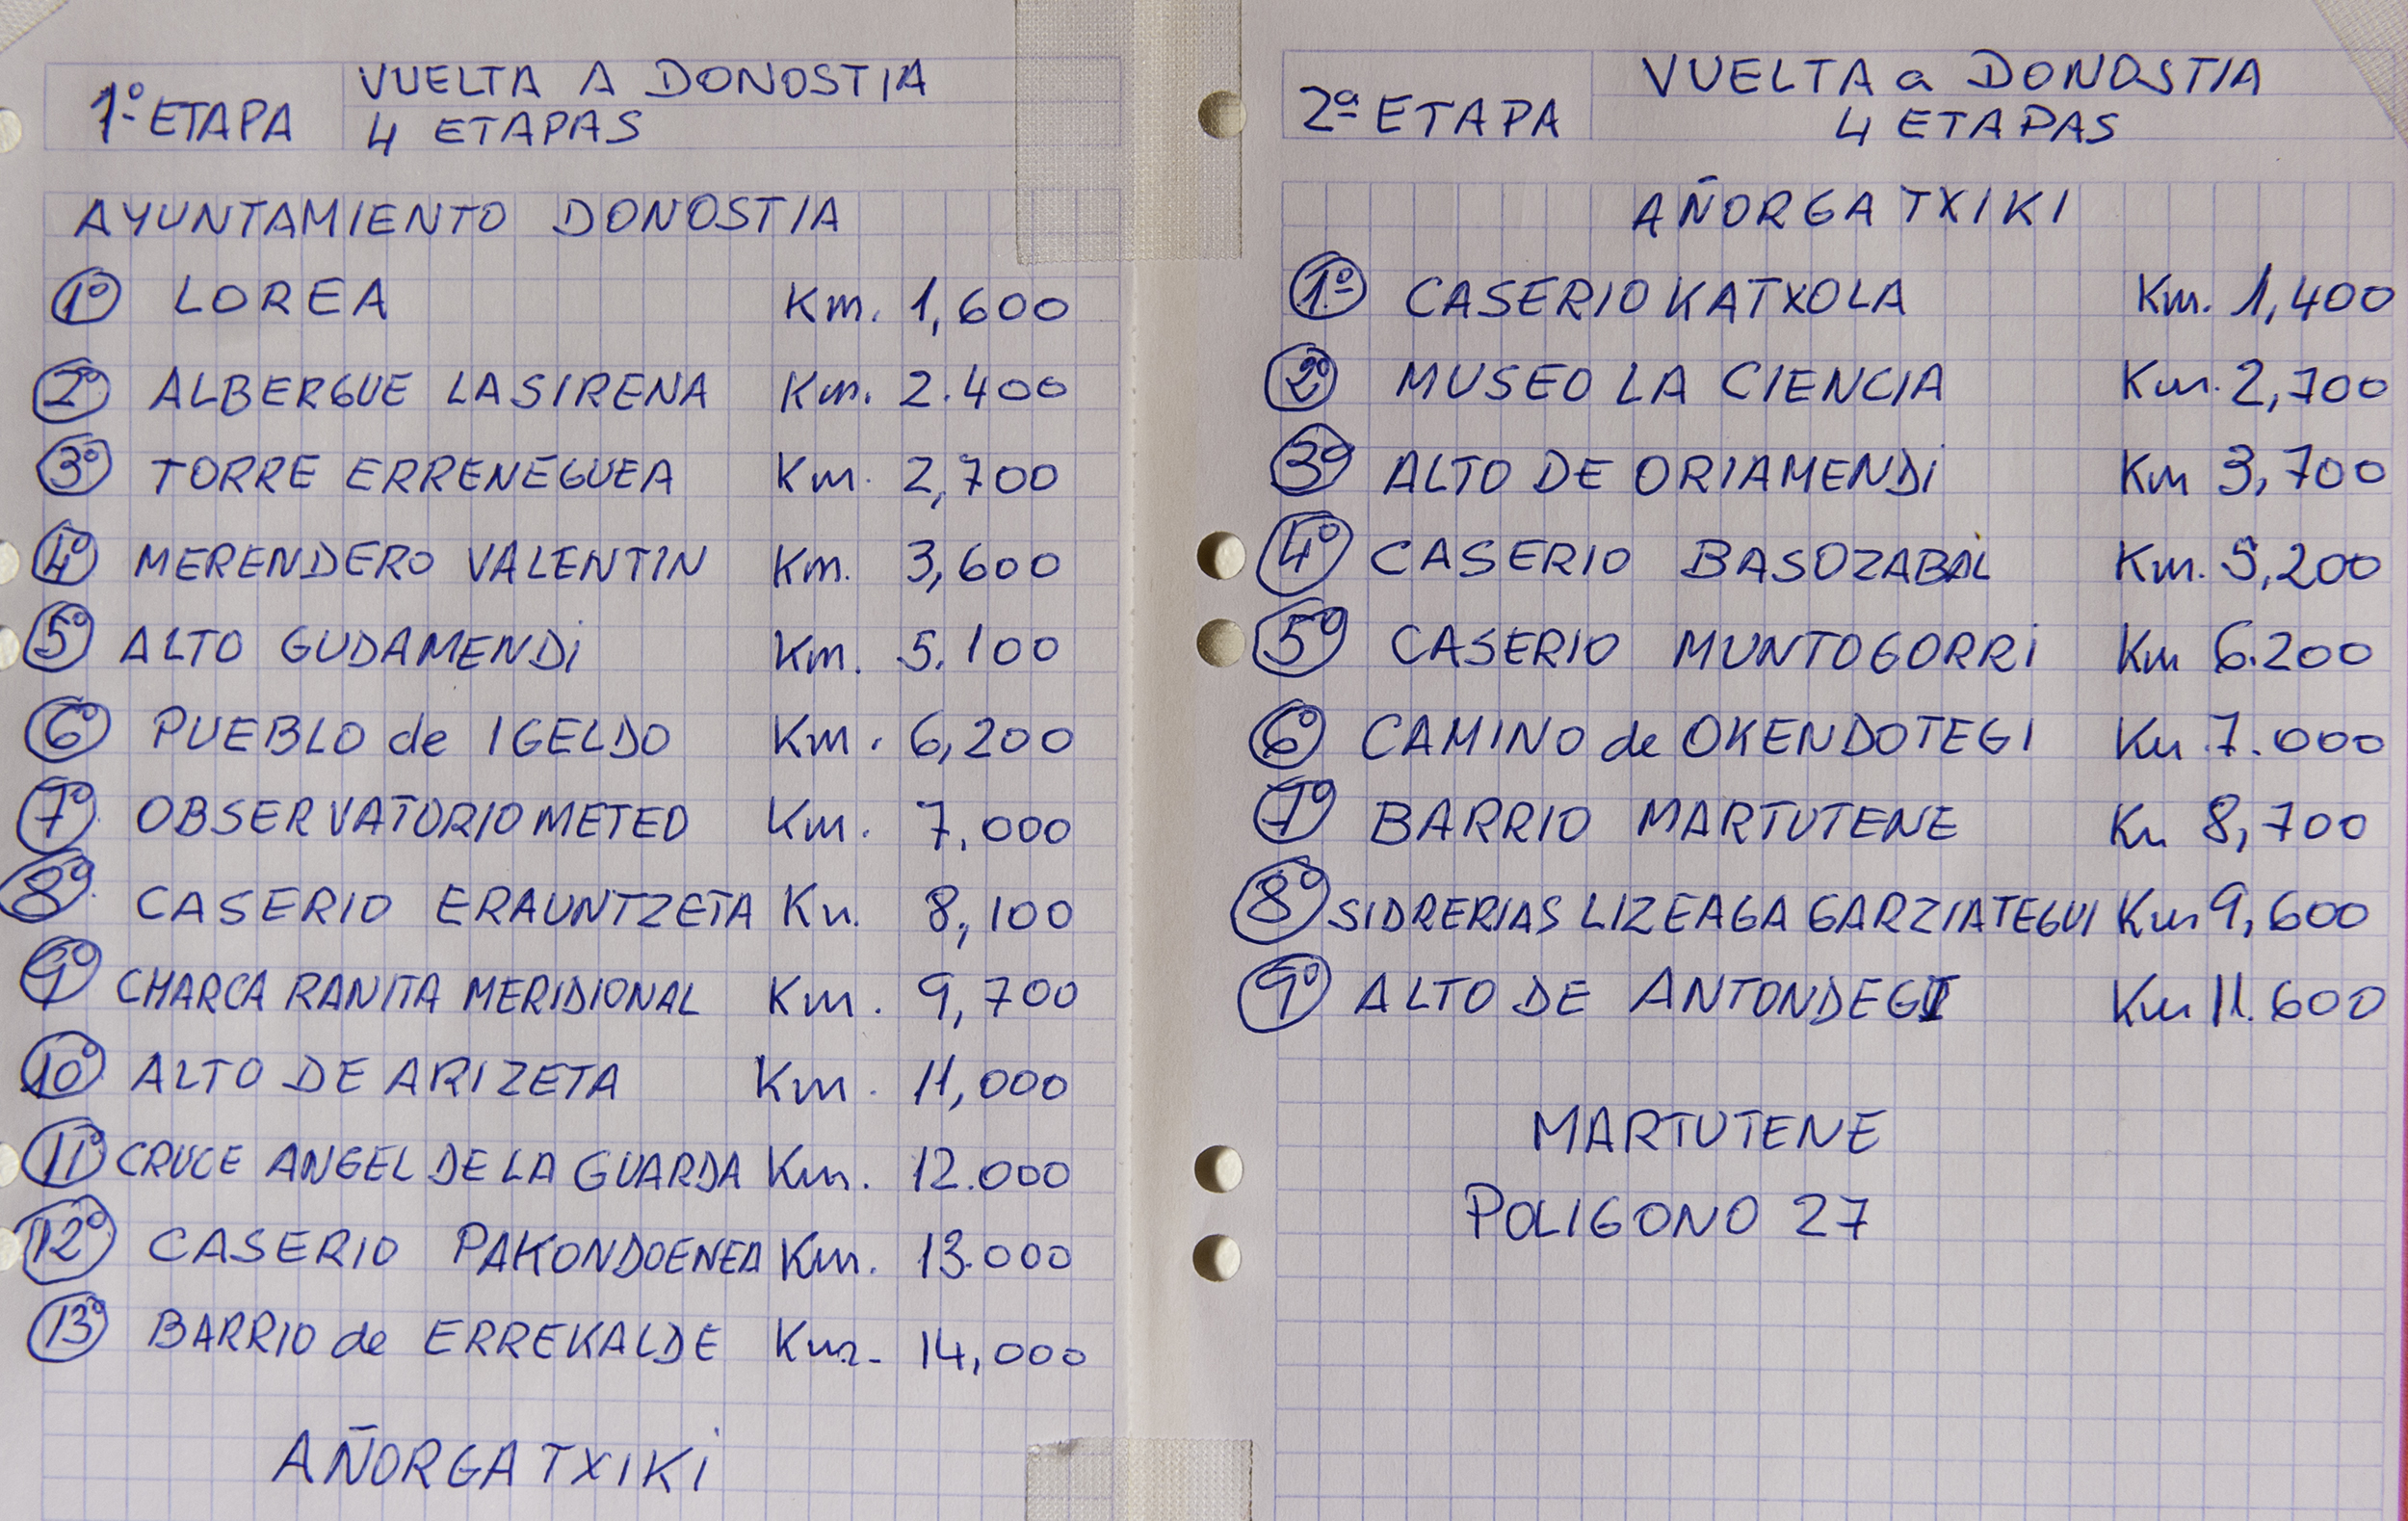 1º ETAPA
VUELTA A DONOSTIA
4 ETAPAS
AYUNTAMIENTO DONOSTIA
1º LOREA Km. 1,600
2º ALBERGUE LA SIRENA Km. 2.400
3º TORRE ERRENEGUEA Km. 2,700
4º MERENDERO VALENTIN Km. 3,600
5º ALTO GUDAMENDi Km. 5.100
6º PUEBLO de IGELDO Km. 6,200
7º OBSERVATORIO METEO Km. 7,000
8º CASERIO ERAUNTZETA Km. 8,100
9º CHARCA RANITA MERIDIONAL Km. 9,700
10º ALTO DE ARIZETA Km. 11,000
11º CRUCE ANGEL DE LA GUARDA Km. 12.000
12º CASERIO PAKONDOENEA Km. 13.000
13º BARRIO de ERREKALDE Km. 14,000
AÑORGA TXIKi
2ª ETAPA
VUELTA a DONOSTIA
4 ETAPAS
AÑORGA TXIKI
1º CASERIO KATXOLA Km. 1,400
2º MUSEO LA CIENCIA Km. 2,700
3º ALTO DE ORIAMENDi Km 3,700
4º CASERIO BASOZABAL Km. 5,200
5º CASERIO MUNTOGORRi Km 6.200
6º CAMINO de OKENDOTEGI Km 7.000
7º BARRIO MARTUTENE Km 8,700
8º SIDRERIAS LIZEAGA GARZIATEGUI Km 9,600
9º ALTO DE ANTONDEGI Km 11.600
MARTUTENE
POLIGONO 27